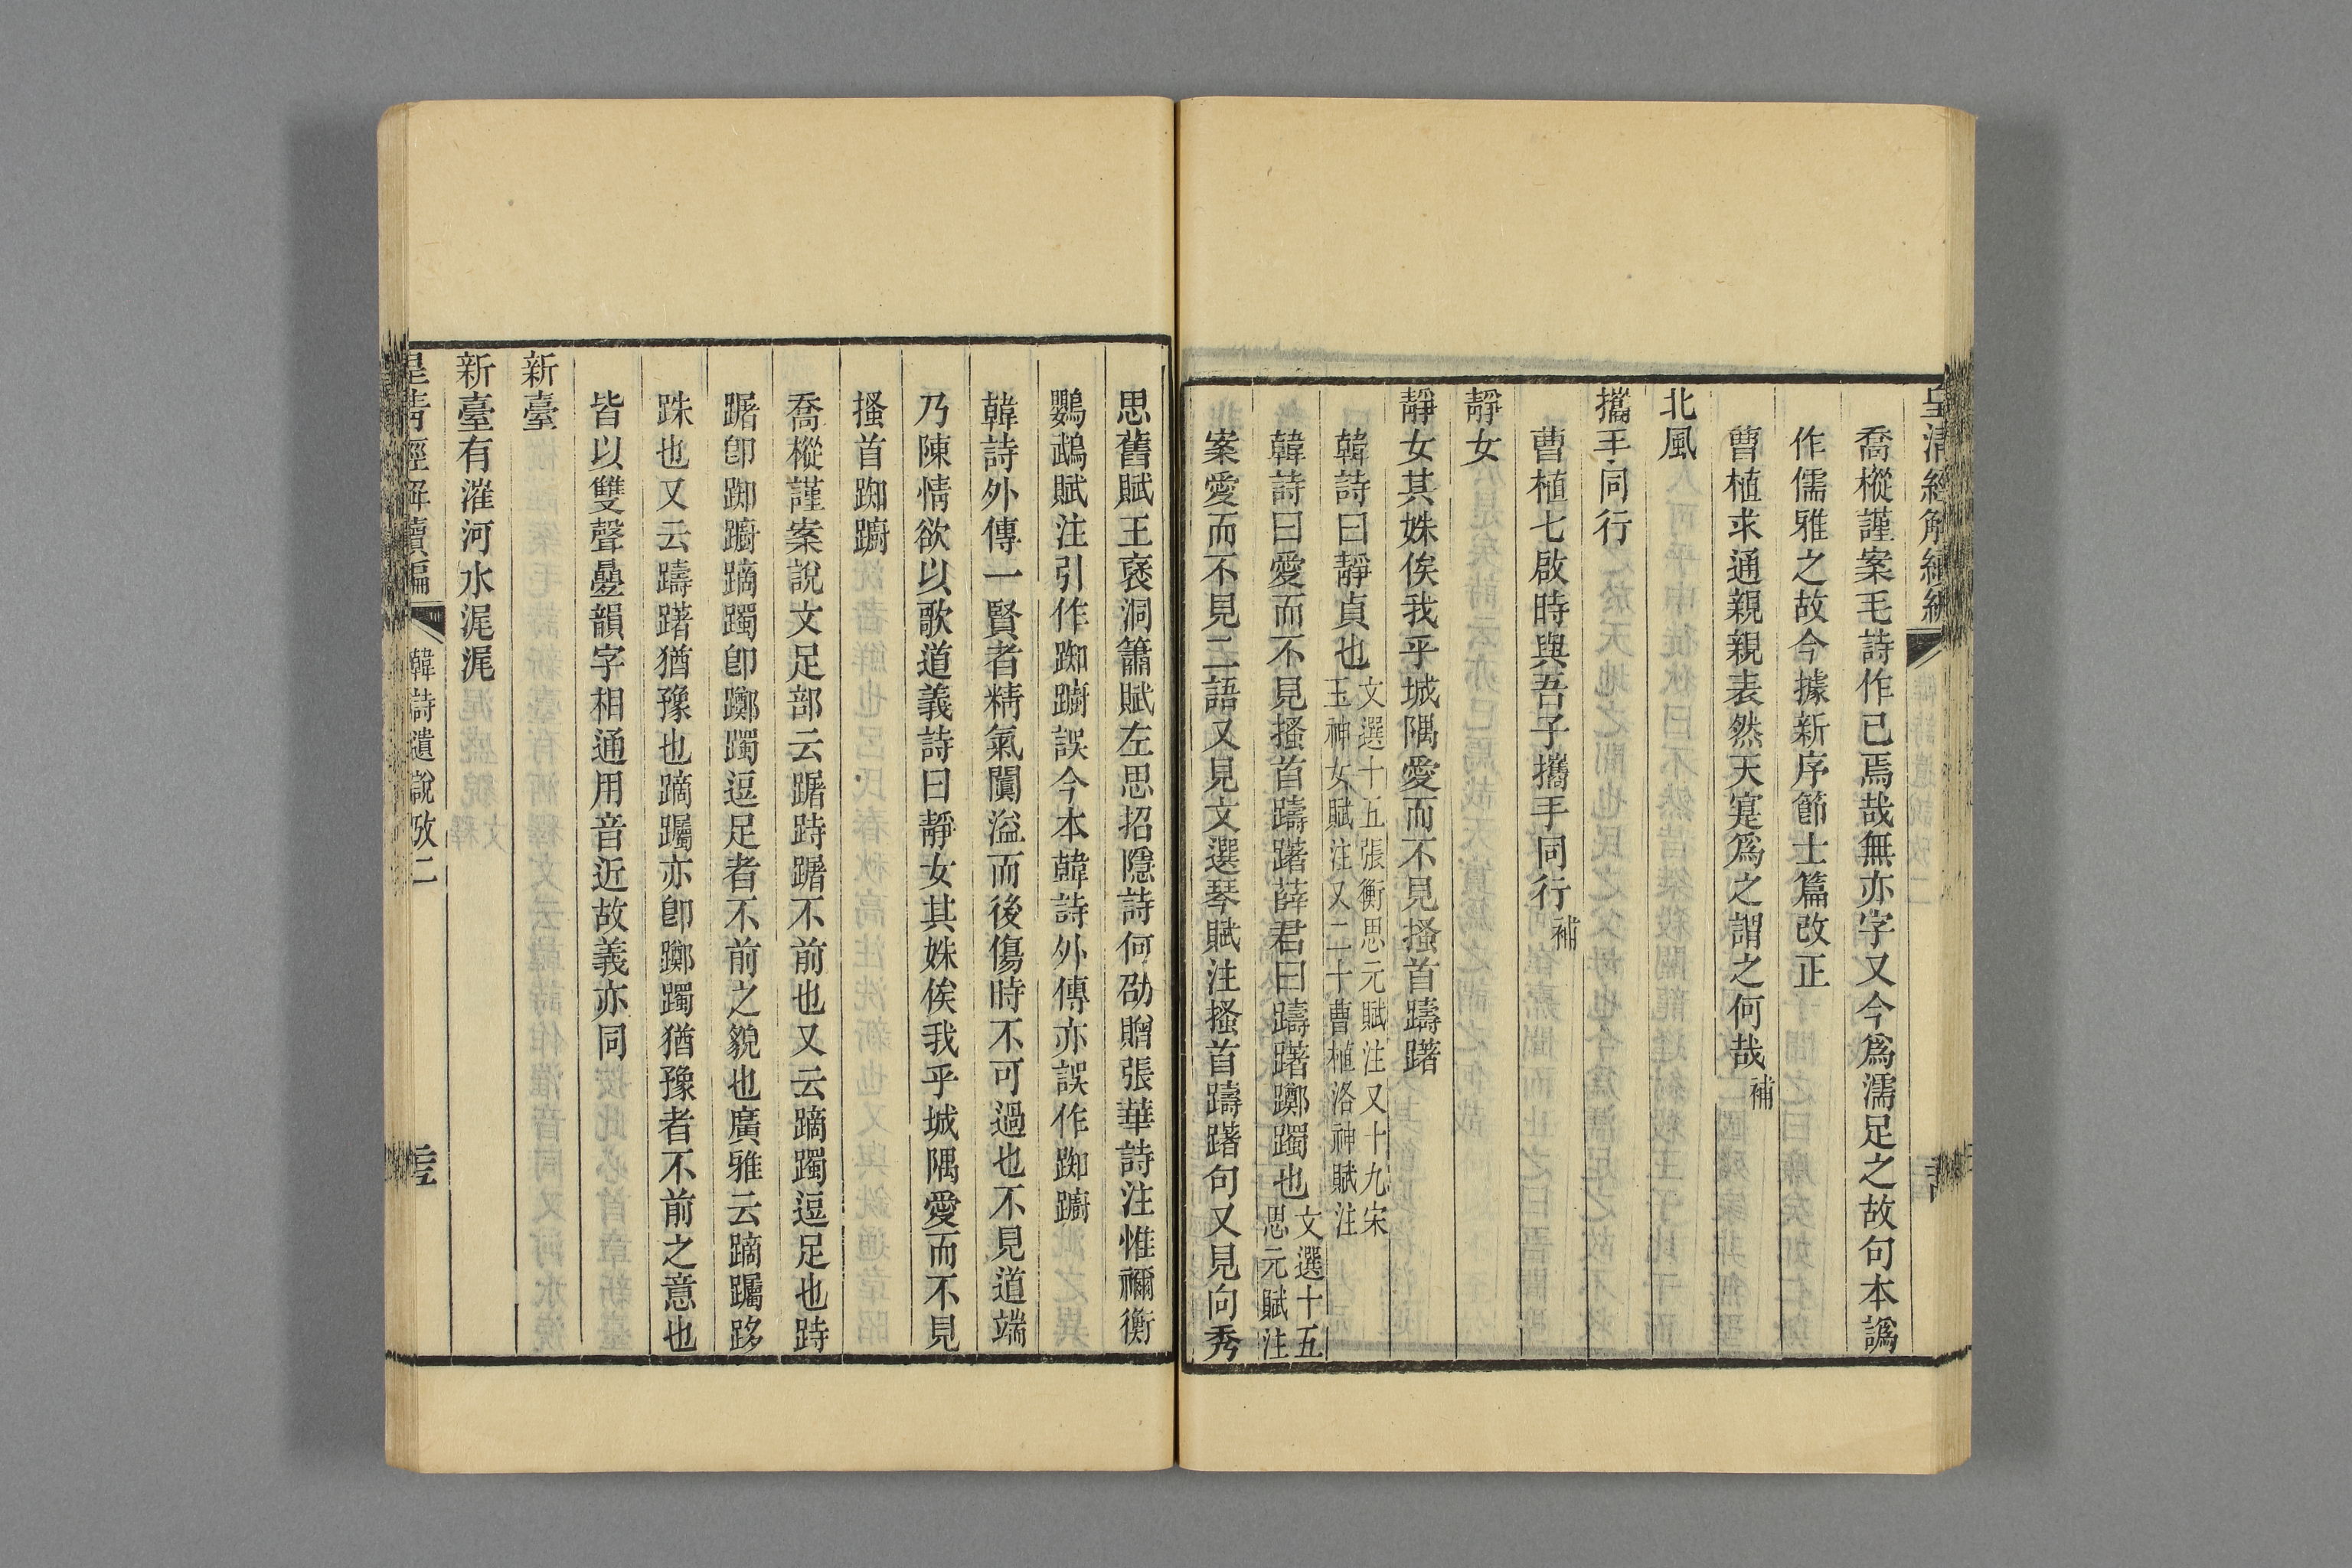 皇清經解續編
喬樅謹案毛詩作已焉哉無亦字又今爲濡足之故句本譌
作儒雅之故今據新序節士篇改正
曹植求通親親表然天寔爲之謂之何哉補
北風
攜手同行
曹植七啟時與吾子攜手同行補
靜女
靜女其姝俟我乎城隅愛而不見搔首躊躇
韓詩曰靜貞也文選十五張衡思元賦注又十九宋
玉神女賦注又二十曹植洛神賦注
韓詩曰愛而不見搔首躊躇薛君曰躊躇躑躅也文選十五
思元賦注
案愛而不見二語又見文選琴賦注搔首躊躇句又見向秀
思舊賦王褒洞簫賦左思招隱詩何劭贈張華詩注惟禰衡
鸚鵡賦注引作踟躕誤今本韓詩外傳亦誤作踟躕
韓詩外傳一賢者精氣闐溢而後傷時不可過也不見道端
乃陳情欲以歌道義詩曰靜女其姝俟我乎城隅愛而不見
搔首踟躕
喬樅謹案說文足部云踞跱踞不前也又云蹢躅逗足也跱
踞卽踟躕蹢躅卽躑躅逗足者不前之貌也廣雅云蹢躅跢
跦也又云躊躇猶豫也蹢躅亦卽躑躅猶豫者不前之意也
皆以雙聲疊韻字相通用音近故義亦同
新臺
新臺有漼河水浘浘
皇清經解續編 韓詩遺說攷二